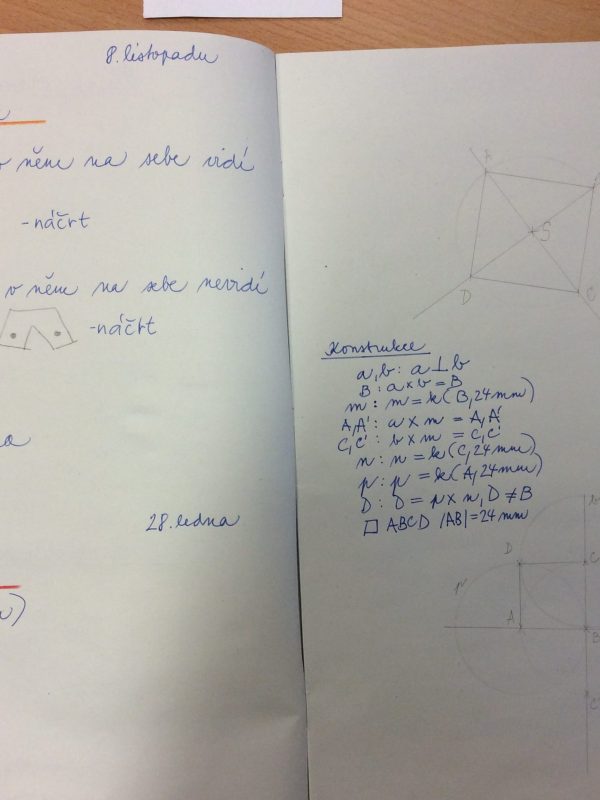 8. listopadu
v něm na sebe vidí
-náčrt
v něm na sebe nevidí
-náčrt
28. ledna
S
D
C
Konstrukce
a, b: a ⊥ b
B: a × b = B
m: m = k(B, 24 mm)
A, A': a × m = A, A'
C, C': b × m = C, C'
n: n = k(C, 24 mm)
p: p = k(A, 24 mm)
D: D = p × n, D ≠ B
□ ABCD |AB| = 24 mm
b
D
C
p
A
B
C'